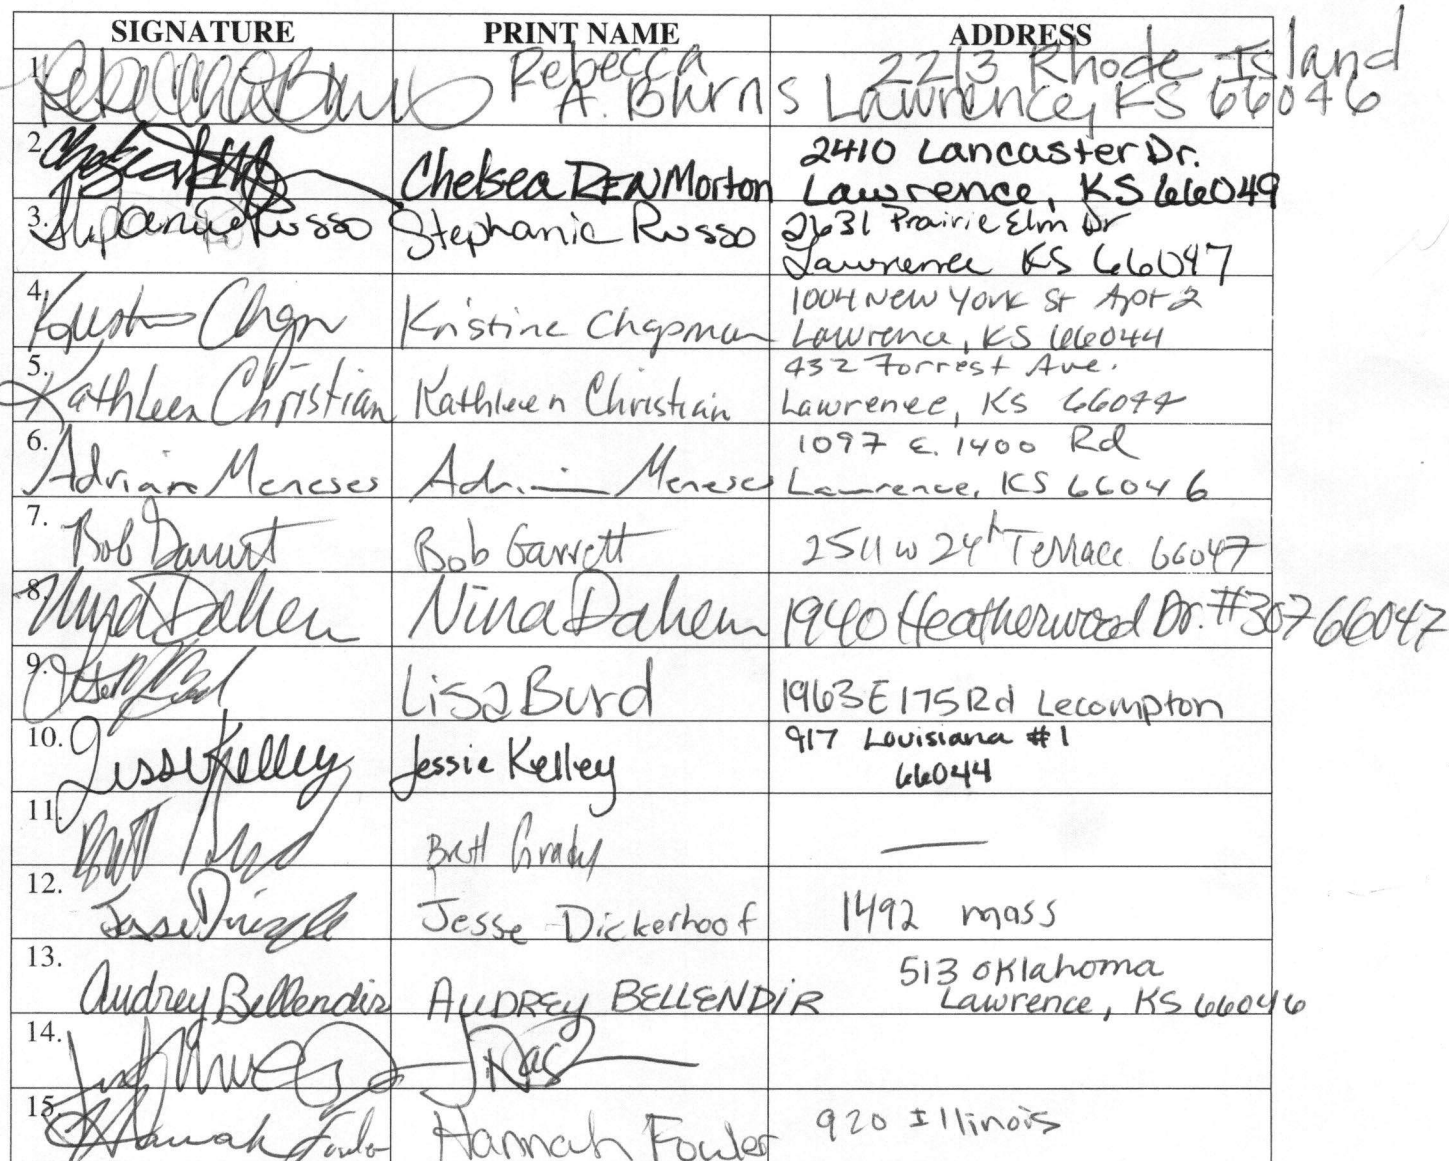 SIGNATURE PRINT NAME ADDRESS
1. Rebecca Burns Rebecca 2213 Rhode Island
A. Burns Lawrence, KS 66046
2. Chelsea DEN Morton 2410 Lancaster Dr.
Lawrence, KS 66049
3. Stephanie Russo Stephanie Russo 2631 Prairie Elm Dr
Lawrence KS 66047
4. Kristine Chapman 1004 New York St Apt 2
Lawrence, KS 66044
5. Kathleen Christian Kathleen Christian 432 Forrest Ave.
Lawrence, KS 66044
6. Adrian Meneses Adrian Meneses 1097 E. 1400 Rd
Lawrence, KS 66046
7. Bob Garrett Bob Garrett 2511 W 24th Terrace 66047
8. Nina Dahem Nina Dahem 1940 Heatherwood Dr. #307 66047
9. Lisa Burd 1963 E 175 Rd Lecompton
10. Jessie Kelley Jessie Kelley 917 Louisiana #1
66044
11. Brett Grady —
12. Jesse Jesse Dickerhoof 1492 mass
13. Audrey Bellendir AUDREY BELLENDIR 513 Oklahoma
Lawrence, KS 66046
14.
15. Hannah Fowler Hannah Fowler 920 Illinois